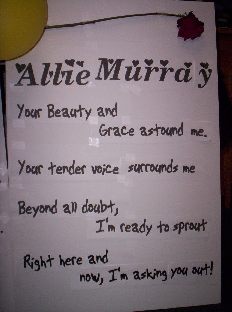 Allie Murray
Your Beauty and
Grace astound me.
Your tender voice surrounds me
Beyond all doubt,
I'm ready to sprout
Right here and
now, I'm asking you out!